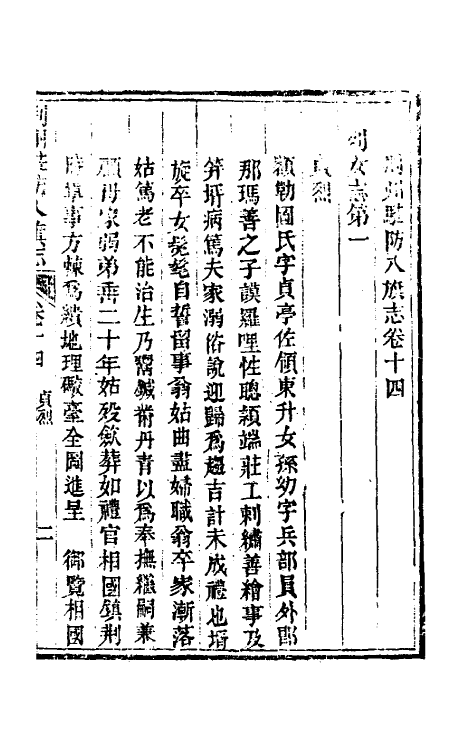 荊州駐防八旗志卷十四
列女志第一
貞烈
穎勒國氏字貞亭佐領東升女孫幼字兵部員外郎
那瑪善之子謨羅哩性聰穎端莊工刺繡善繪事及
笄壻病篤夫家溺俗說迎歸爲趨吉計未成禮也壻
旋卒女髧髦自誓留事翁姑曲盡婦職翁卒家漸落
姑篤老不能治生乃鬻鍼黹丹青以爲奉撫繼嗣兼
顧母家弱弟壽二十年姑歿歛葬如禮官相國鎮荆
時軍事方棘爲繢地理礮臺全圖進呈 御覽相國
荊州駐防八旗志 卷十四 貞烈 一